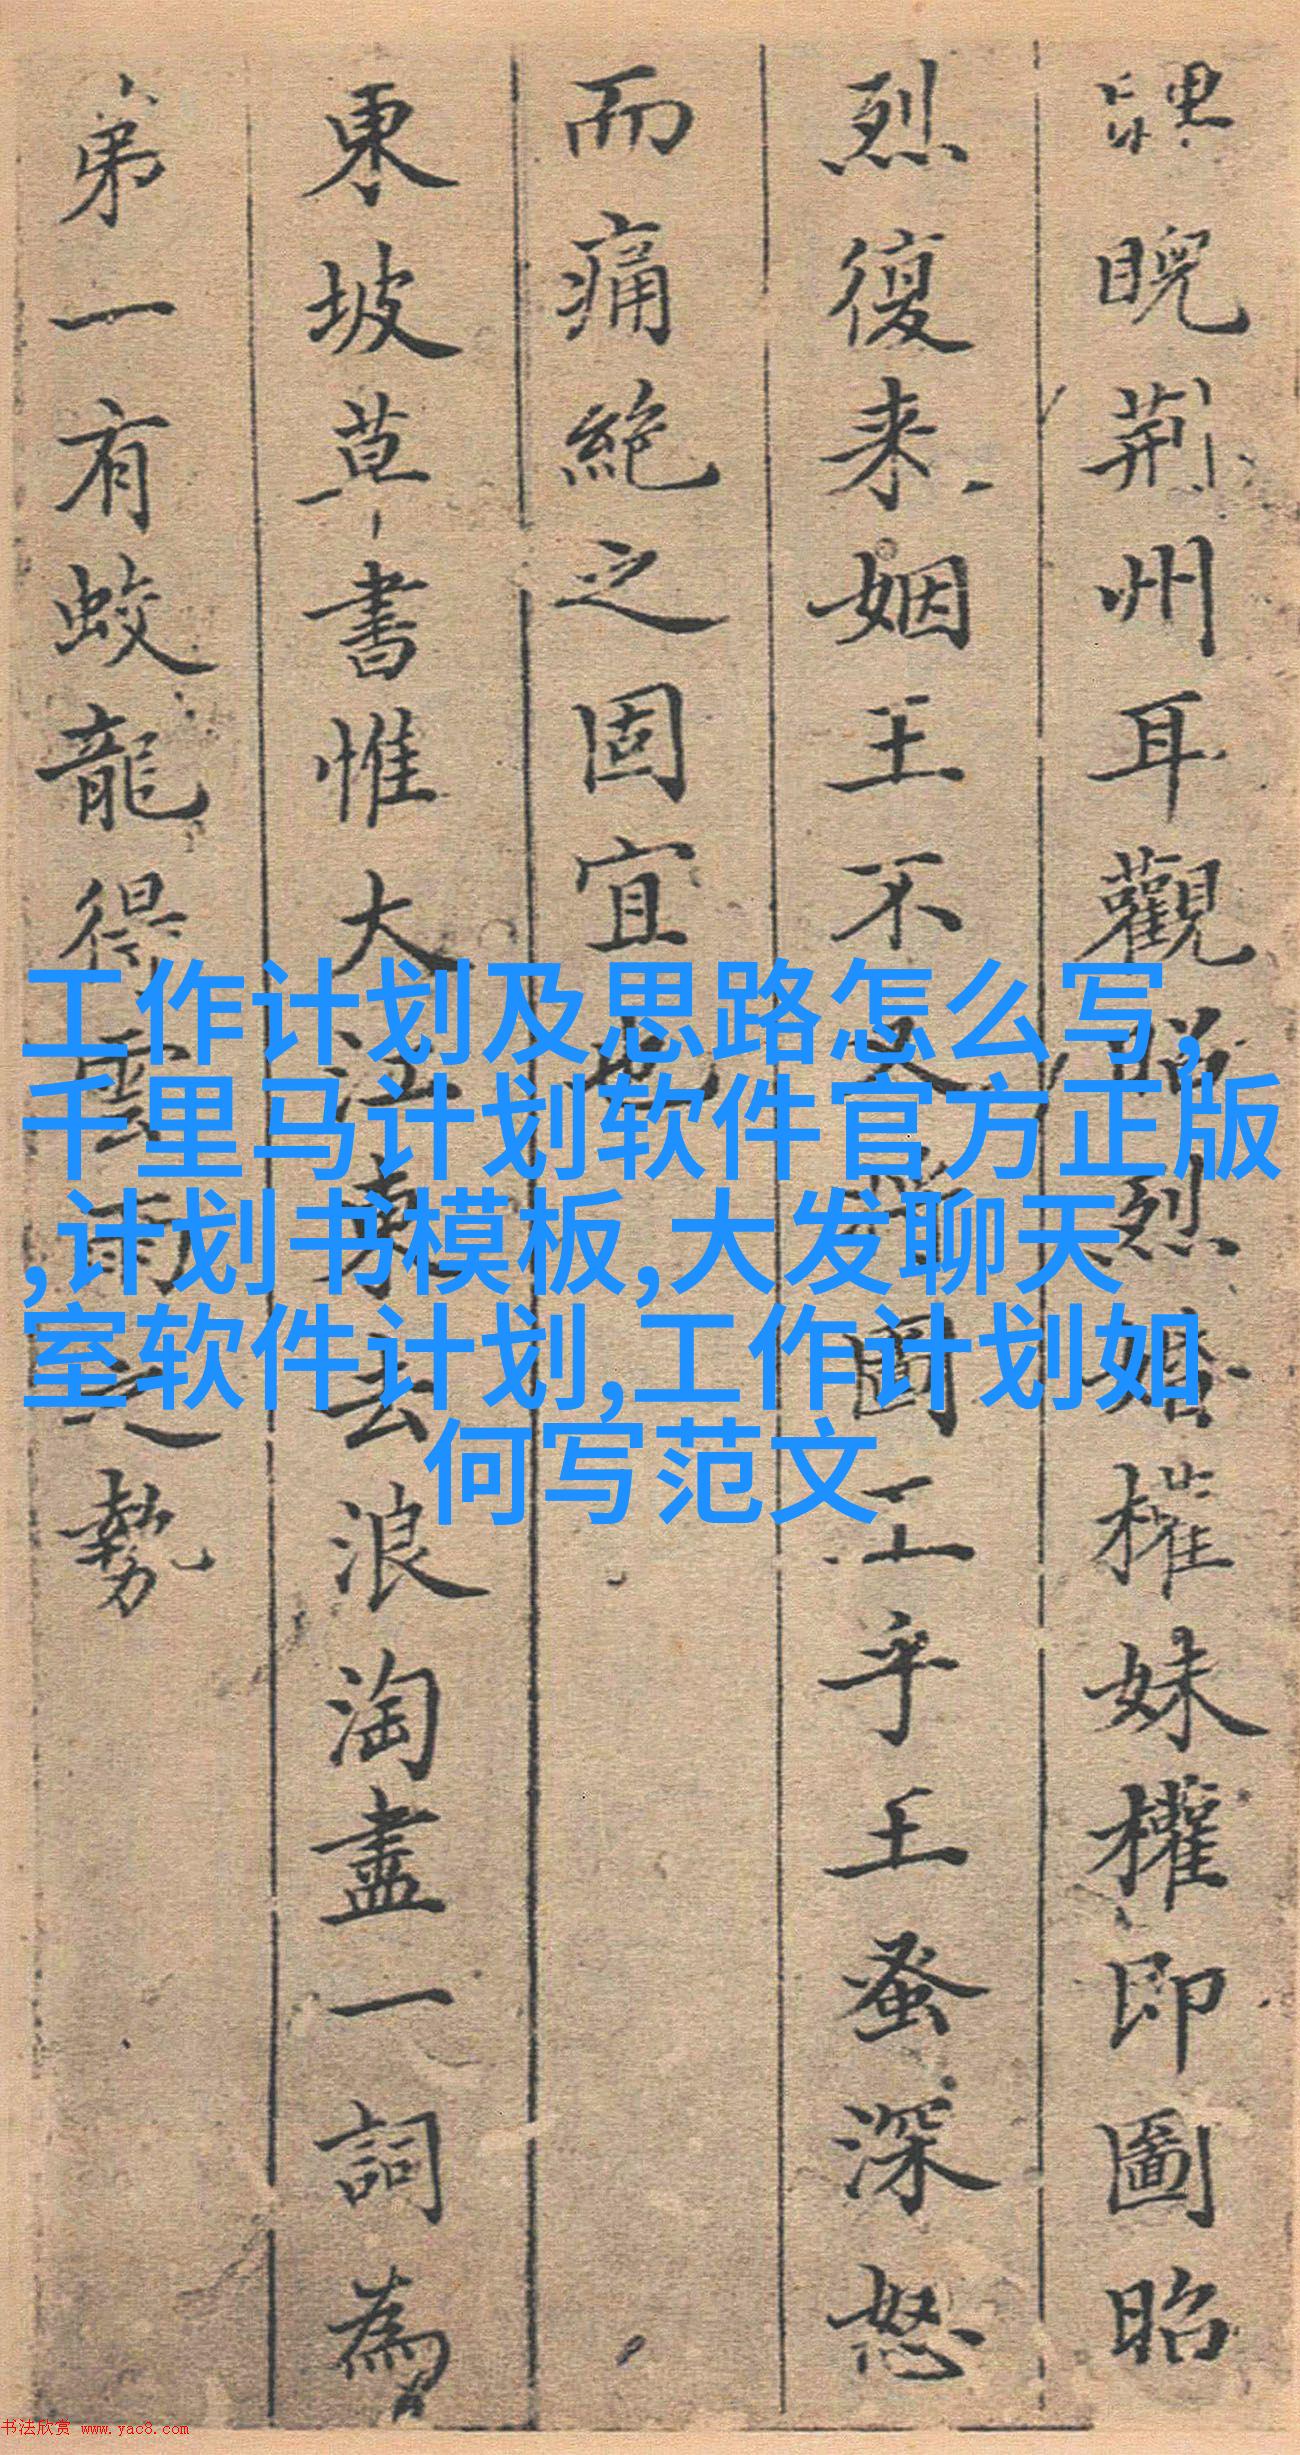 睨荆州耳觀昭烈婚權妹權即圖昭
烈復来姻王不圖工乎王蚤深怒
而痛絶之固宜也
東坡草書惟大江東去浪淘盡一詞為
弟一有蛟龍得雲雨之勢
工作计划及思路怎么写,
千里马计划软件官方正版
,计划书模板,大发聊天
室软件计划,工作计划如
何写范文
书法欣赏 www.yac8.com